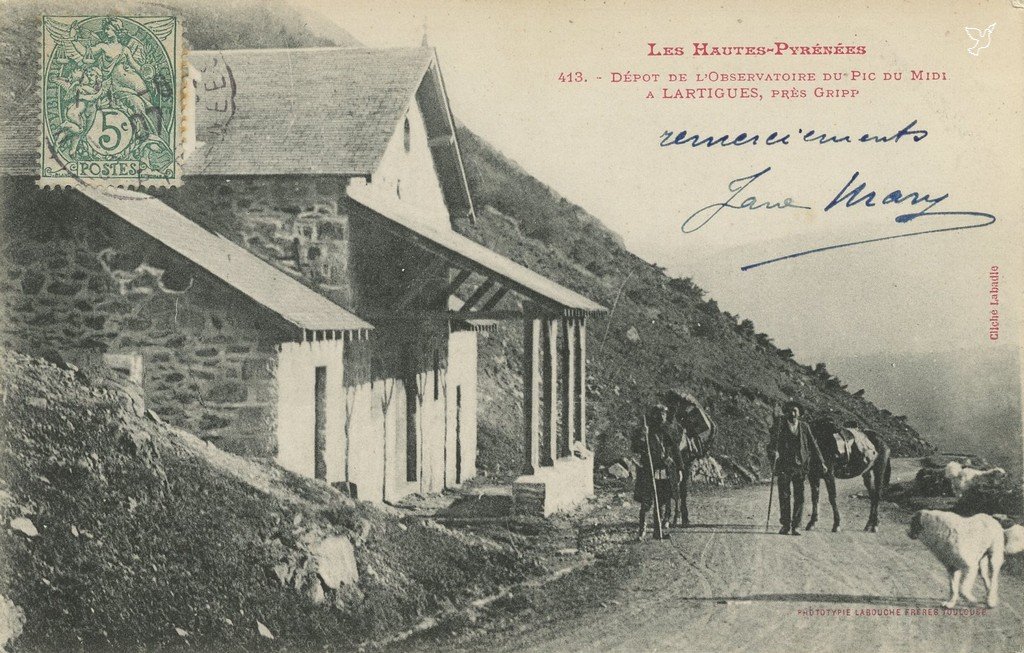 LES HAUTES-PYRÉNÉES
413. - DÉPOT DE L'OBSERVATOIRE DU PIC DU MIDI
A LARTIGUES, PRÈS GRIPP
remerciements
Jane Mary
Cliché Labadie
5c
POSTES
PHOTOTYPIE LABOUCHE FRÈRES TOULOUSE